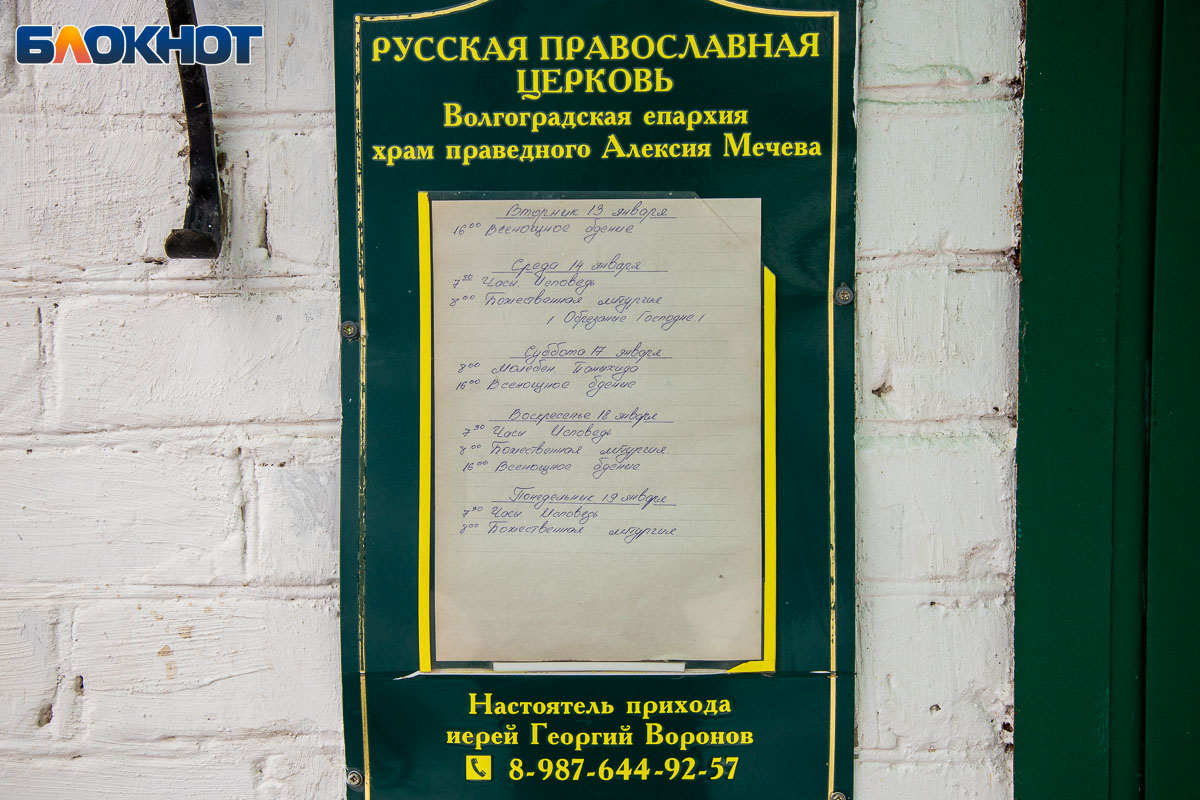 БЛОКНОТ
РУССКАЯ ПРАВОСЛАВНАЯ
ЦЕРКОВЬ
Волгоградская епархия
храм праведного Алексия Мечева
Вторник 13 января
16⁰⁰ Всенощное бдение
Среда 14 января
7³⁰ Часы Исповедь
8⁰⁰ Божественная литургия
/ Обрезание Господне /
Суббота 17 января
8⁰⁰ Молебен Панихида
16⁰⁰ Всенощное бдение
Воскресенье 18 января
7³⁰ Часы Исповедь
8⁰⁰ Божественная литургия
16⁰⁰ Всенощное бдение
Понедельник 19 января
7³⁰ Часы Исповедь
8⁰⁰ Божественная литургия
Настоятель прихода
иерей Георгий Воронов
8-987-644-92-57